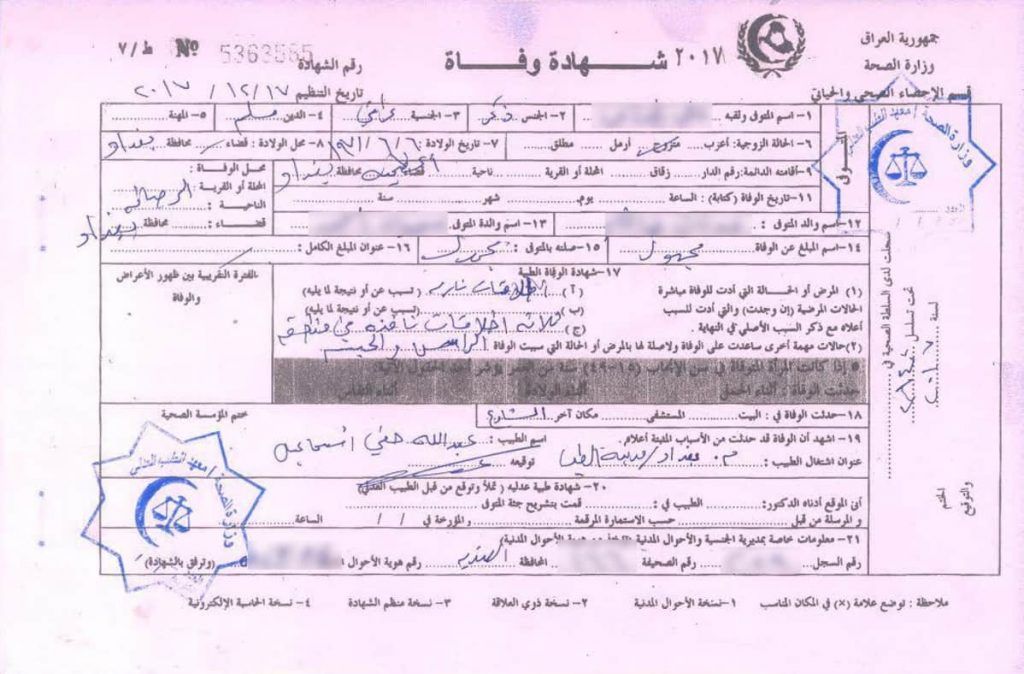 جمهورية العراق
وزارة الصحة
قسم الإحصاء الصحي والحياتي
شـــهادة وفـــاة ٢٠١٧
ط/٧ Nº 5363565
رقم الشهادة
تاريخ التنظيم ١٧ / ١٢ / ٢٠١٧
١- اسم المتوفى ولقبه
٢- الجنس ذكر
٣- الجنسية عراقي
٤- الدين مسلم
٥- المهنة
٦- الحالة الزوجية: أعزب متزوج أرمل مطلق
٧- تاريخ الولادة: ٦ / ٦ /
٨- محل الولادة: قضاء محافظة بغداد
٩- أقامته الدائمة: رقم الدار زقاق المحلة أو القرية ناحية قضاء محافظة بغداد
محل الوفـاة :
المحلة أو القرية :
الناحية :
قضاء : محافظة بغداد
١١- تاريخ الوفاة (كتابة) : الساعة يوم شهر سنة
١٢- اسم والد المتوفى :
١٣- اسم والدة المتوفى
١٤- اسم المبلغ عن الوفاة مجهول
١٥- صلته بالمتوفى : مجهول
١٦- عنوان المبلغ الكامل :
١٧- شهادة الوفاة الطبية
الفترة التقريبية بين ظهور الأعراض
والوفاة
(١) المرض أو الحـالة التي أدت للوفاة مباشرة (أ) اطلاقات نارية (تسبب عن أو نتيجة لما يليه)
الحالات المرضية (إن وجدت) والتي أدت للسبب (ب) (تسبب عن أو نتيجة لما يليه)
أعلاه مع ذكر السبب الأصلي في النهاية . (ج) ثلاثة اطلاقات نافذة في منطقة
(٢) حالات مهمة أخرى ساعدت على الوفاة ولاصلة لها بالمرض أو الحالة التي سببت الوفاة الرأس و
إذا كانت المرأة المتوفاة في سن الإنجاب (١٥-٤٩) سنة
حدثت الوفاة : أثناء الحمل أثناء الولادة أثناء النفاس
١٨- حدثت الوفاة في : البيت المستشفى مكان آخر الشارع
ختم المؤسسة الصحية
١٩- اشهد أن الوفاة قد حدثت من الأسباب المبينة أعلاه. اسم الطبيب : عبدالله اسماعيل
عنوان اشتغال الطبيب : م. بغداد/مدينة الطب توقيعه
٢٠- شهادة طبية عدلية (تملأ وتوقع من قبل الطبيب العدلي)
أني الموقع أدناه الدكتور: الطبيب في : قمت بتشريح جثة المتوفى
و المرسلة من قبل حسب الاستمارة المرقمة و المؤرخة في / / الساعة
٢١- معلومات خاصة بمديرية الجنسية والأحوال المدنية هوية الأحوال المدنية)
رقم السجل رقم الصحيفة المحافظة رقم هوية الأحوال (وترفق بالشهادة)
المتوفى
سجلت لدى السلطة الصحية في
تحت تسلسل
لسنة
الختم
والتوقيع
وزارة الصحة / معهد الطب العدلي
وزارة الصحة / معهد الطب العدلي
ملاحظة : توضع علامة (×) في المكان المناسب ١- نسخة الأحوال المدنية ٢- نسخة ذوي العلاقة ٣- نسخة منظم الشهادة ٤- نسخة الحاسبة الإلكترونية